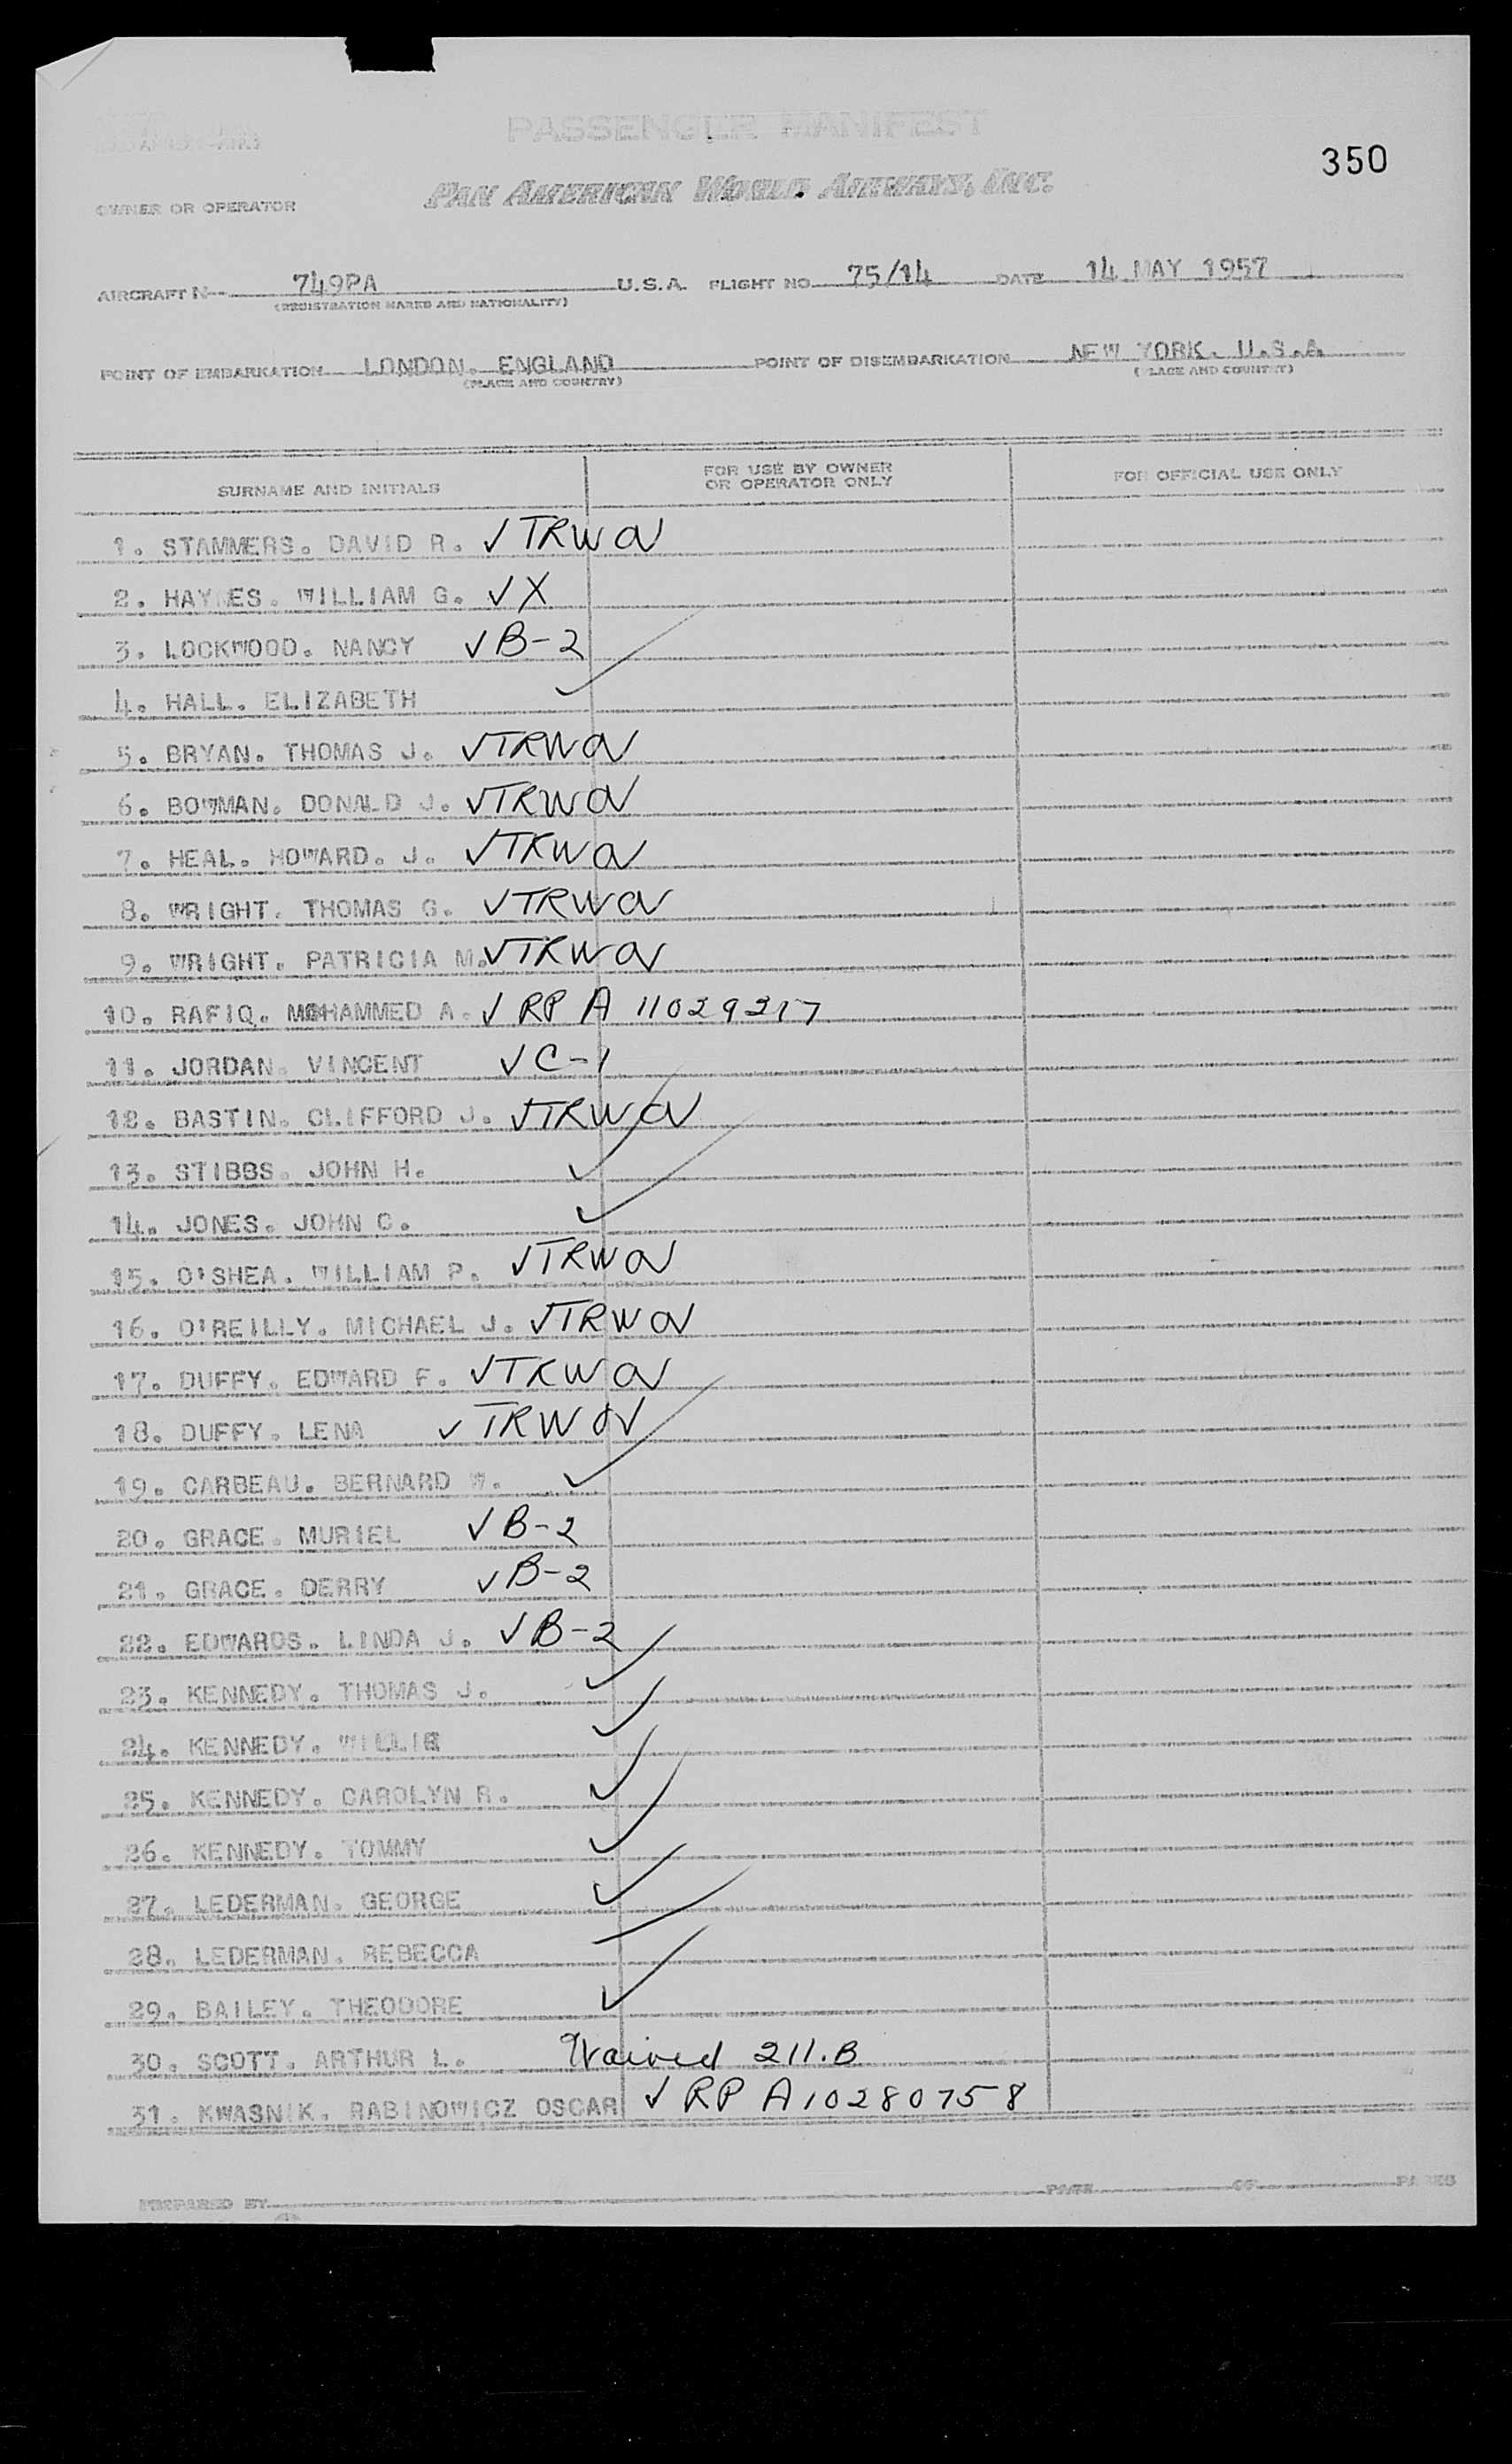 PASSENGER MANIFEST
350
PAN AMERICAN WORLD AIRWAYS, INC.
OWNER OR OPERATOR
AIRCRAFT N 749PA U.S.A. FLIGHT NO. 75/14 DATE 14 MAY 1957
(REGISTRATION MARKS AND NATIONALITY)
POINT OF EMBARKATION LONDON. ENGLAND POINT OF DISEMBARKATION NEW YORK. U.S.A
(PLACE AND COUNTRY) (PLACE AND COUNTRY)
SURNAME AND INITIALS FOR USE BY OWNER OR OPERATOR ONLY FOR OFFICIAL USE ONLY
1. STAMMERS. DAVID R. ✓ TRWOV
2. HAYNES. WILLIAM G. ✓ X
3. LOCKWOOD. NANCY ✓ B-2
4. HALL. ELIZABETH ✓
5. BRYAN. THOMAS J. ✓ TRWOV
6. BOWMAN. DONALD J. ✓ TRWOV
7. HEAL. HOWARD. J. ✓ TRWOV
8. WRIGHT. THOMAS G. ✓ TRWOV
9. WRIGHT. PATRICIA M. ✓ TRWOV
10. RAFIQ. MOHAMMED A. ✓ RP A 11029217
11. JORDAN. VINCENT ✓ C-1
12. BASTIN. CLIFFORD J. ✓ TRWOV
13. STIBBS. JOHN H. ✓
14. JONES. JOHN C. ✓
15. O'SHEA. WILLIAM P. ✓ TRWOV
16. O'REILLY. MICHAEL J. ✓ TRWOV
17. DUFFY. EDWARD F. ✓ TRWOV
18. DUFFY. LENA ✓ TRWOV
19. CARBEAU. BERNARD W. ✓
20. GRACE. MURIEL ✓ B-2
21. GRACE. DERRY ✓ B-2
22. EDWARDS. LINDA J. ✓ B-2
23. KENNEDY. THOMAS J. ✓
24. KENNEDY. WILLIE ✓
25. KENNEDY. CAROLYN R. ✓
26. KENNEDY. TOMMY ✓
27. LEDERMAN. GEORGE ✓
28. LEDERMAN. REBECCA ✓
29. BAILEY. THEODORE ✓
30. SCOTT. ARTHUR L. Waived 211.B
31. KWASNIK. RABINOWICZ OSCAR ✓ RP A10280758
PREPARED BY PAGE OF PAGES